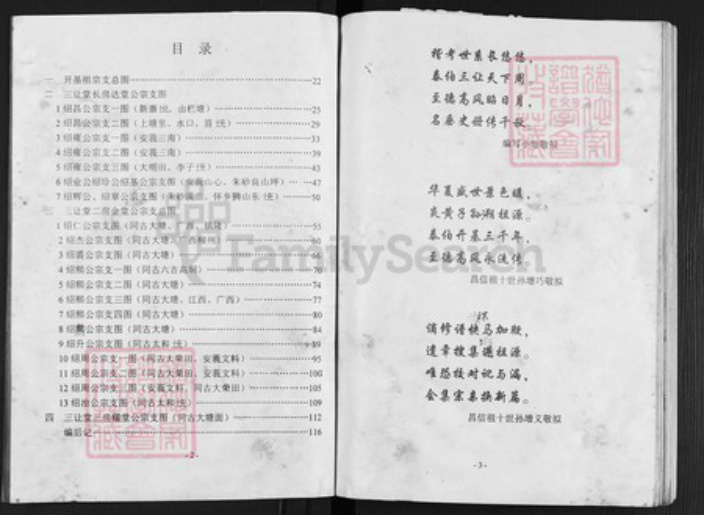 目 录
一 开基祖宗支总图 22
二 三让堂长房达堂公宗支图
1 绍昌公宗支一图（新塞 、山栏塘） 25
2 绍昌公宗支二图（上塘里、水口、 ） 29
3 绍雍公宗支一图（安義三南） 33
4 绍雍公宗支二图（安義三南） 39
5 绍雍公宗支三图（大明田、李子 ） 43
6 绍业公绍珍公绍基公宗支图（安義山心、朱砂良山坪） 47
7 绍辉公、绍章公宗支图（朱砂溪 、怀乡狮山东 ） 50
三 三让堂二房金堂公宗支总图
1 绍仁公宗支图（同古大塘、广西、镇隆） 55
2 绍杰公宗支图（同古大塘、六古柳村） 60
3 绍 公宗支图（同古大塘） 66
4 绍熙公宗支一图（同古六古高制） 70
5 绍熙公宗支二图（同古大塘） 74
6 绍熙公宗支三图（同古大塘、江西、广西） 77
7 绍熙公宗支四图（同古大塘） 80
8 绍 公宗支图（同古大塘） 84
9 绍升公宗支图（同古太和 ） 89
10 绍周公宗支一图（同古大荣田、安義文料） 95
11 绍周公宗支二图（同古大荣田、安義文料） 100
12 绍周公宗支三图（安義文料、同古大荣田） 105
13 绍治公宗支图（同古太和 ） 109
四 三让堂三房耀堂公宗支图（同古大塘面） 112
编后记 116
-2-
稽考世系长悠悠，
泰伯三让天下周，
至德高风昭日月，
名垂史册传千秋。
编写小组敬拟
华夏盛世景色嫣，
炎黄子孙溯祖源。
泰伯开基三千年，
至德高风永流传。
昌信祖十世孙增巧敬拟
谱修谱快马加鞭，
遗章搜集溯祖源。
唯恐校对讹与漏，
会集宗亲换新篇。
昌信祖十世孙增义敬拟
-3-
FamilySearch